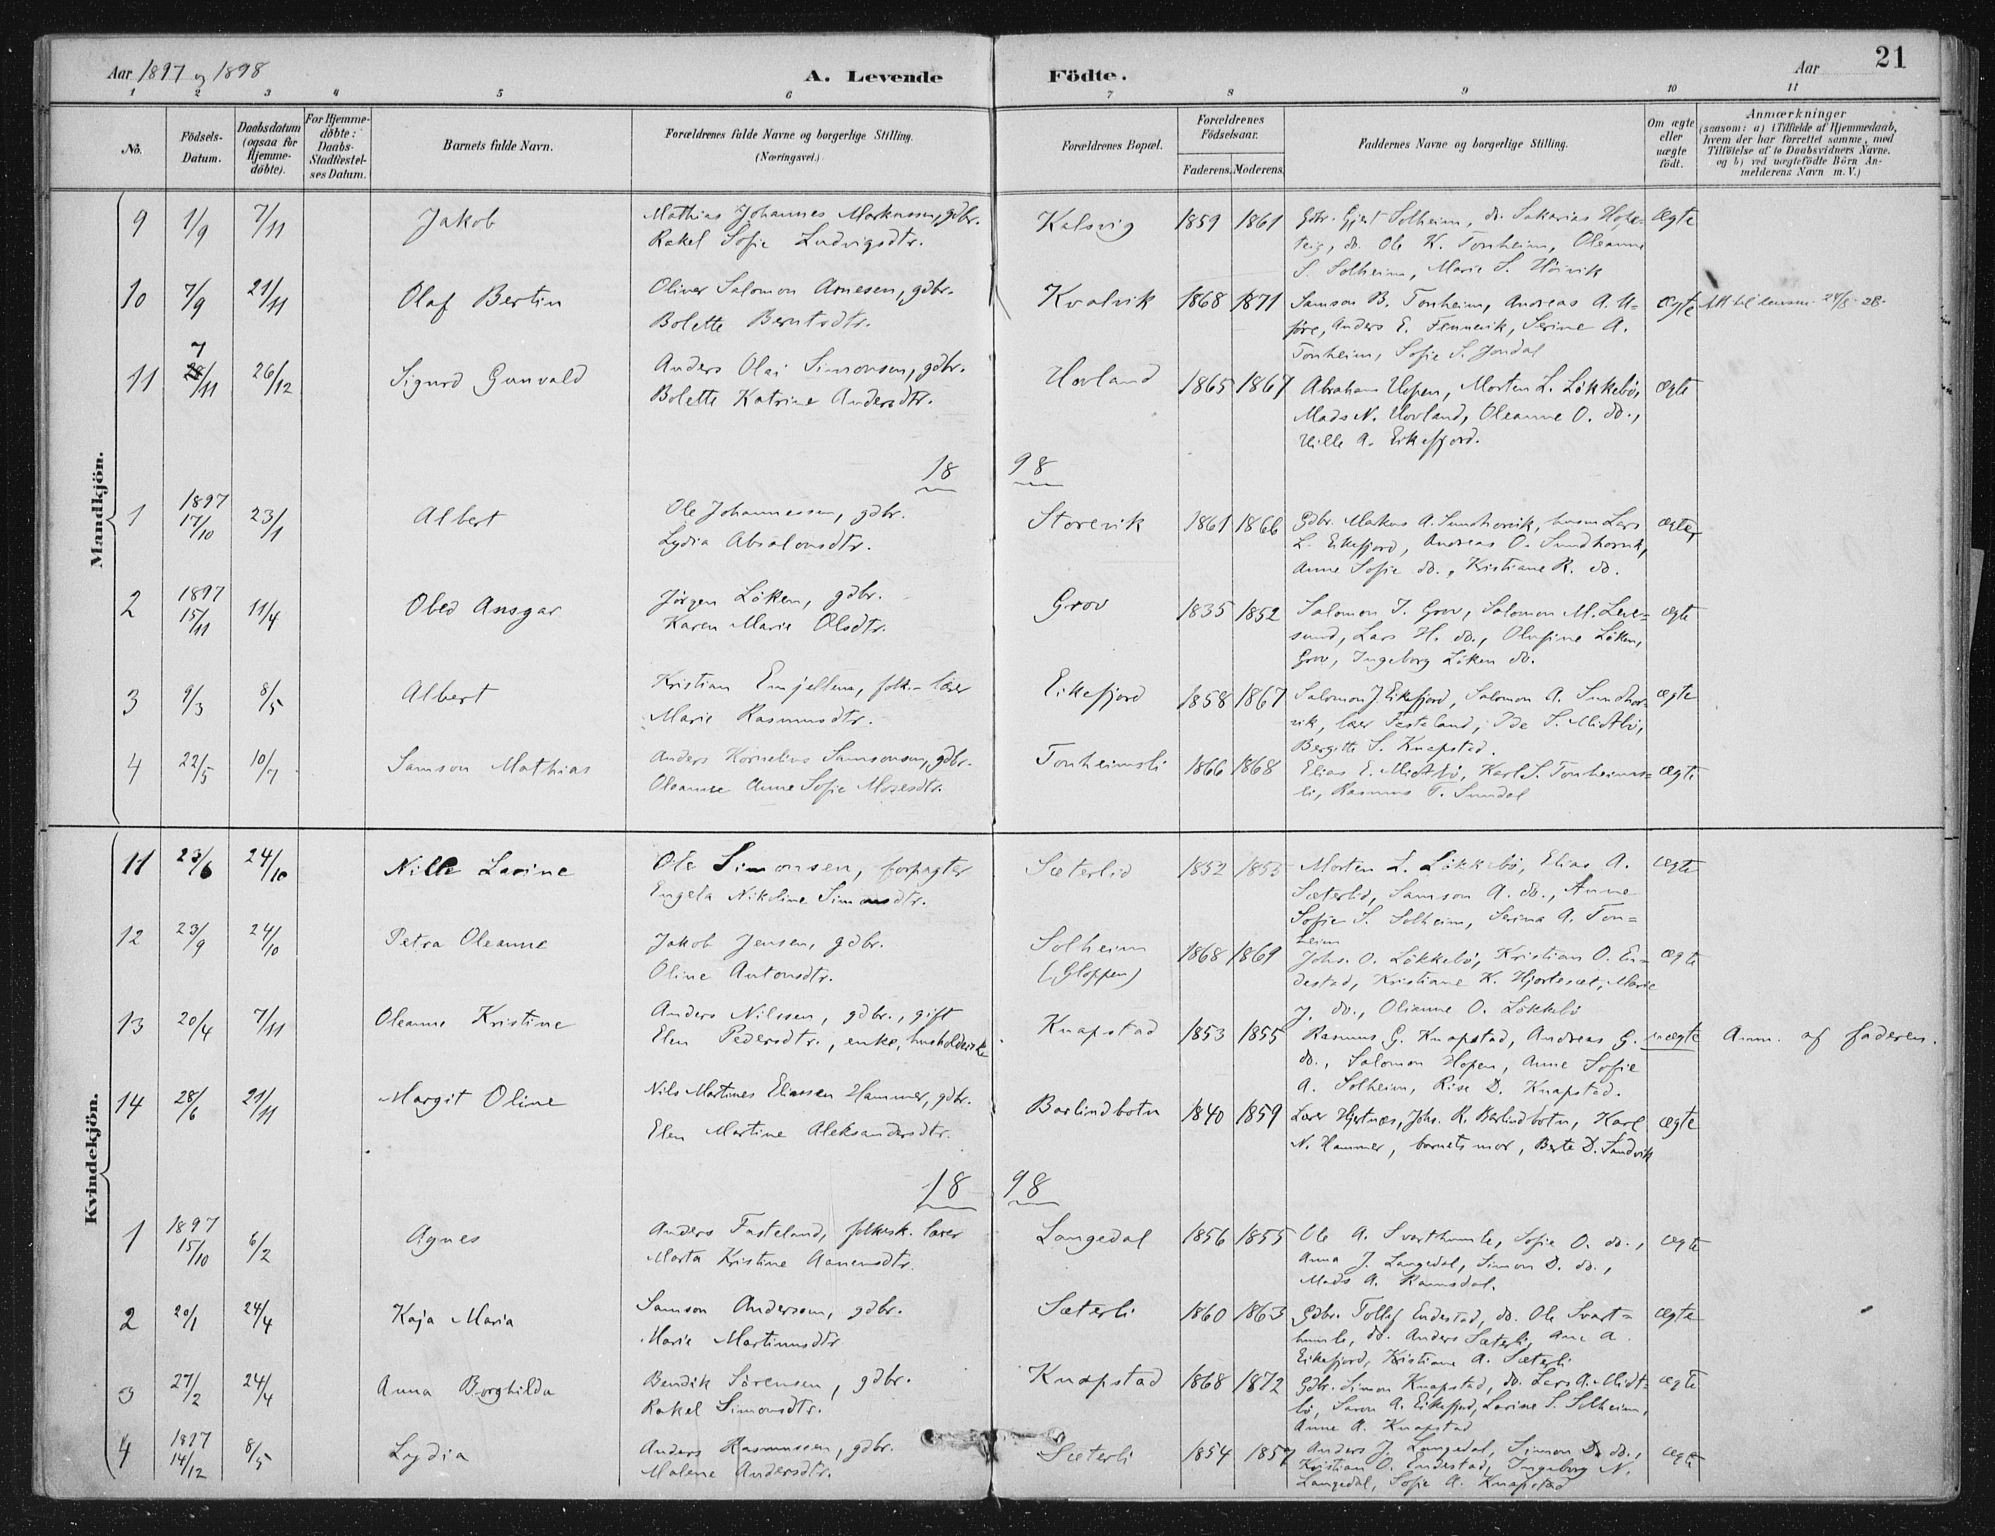 Aar 1897 og 1898
A. Levende Födte.
Aar 21
1 2 3 4 5 6 7 8 9 10 11
No.
Födsels-Datum.
Daabsdatum (ogsaa for Hjemme-döbte).
For Hjemme-döbte: Daabs-Stadfæstel-ses Datum.
Barnets fulde Navn.
Forældrenes fulde Navne og borgerlige Stilling.
(Næringsvei.)
Forældrenes Bopæl.
Forældrenes Födselsaar.
Faderens. Moderens.
Faddernes Navne og borgerlige Stilling.
Om ægte eller uægte födt.
Anmærkninger
(saasom: a) i Tilfælde af Hjemmedaab,
hvem der har forrettet samme, med
Tilföielse af to Daabsvidners Navne.
og b) ved uægtefödte Börn An-
melderens Navn m. V.)
Mandkjön.
9 1/9 7/11 Jakob Mathias Johannes Markussen, gdbr. Kalsvig 1859 1861 Gdbr. Gjert Solheim, do. Sakarias ægte
Rakel Sofie Ludvigsdtr. teig, do. Ole K. Tonheim, Oleanne
S. Solheim, Marie S. Höivik
10 7/9 21/11 Olaf Bertin Oliver Salomon Arnesen, gdbr. Kvalvik 1868 1871 Samson B. Tonheim, Andreas A. ægte
Bolette Berntsdtr. Anders E. Fennevik, Serine A.
Tonheim, Sofie S. Jondal
11 7/11 26/12 Sigurd Gunvald Anders Olai Simonsen, gdbr. Hovland 1865 1867 Abraham Hopen, Morten L. Lökkebö, ægte
Bolette Katrine Andersdtr. Mads N. Hovland, Oleanne O. do.,
Hille A. Eikefjord.
18 98
1 1897 17/10 23/1 Albert Ole Johannessen, gdbr. Storevik 1861 1866 Gdbr. Markus A. Sundhorvik, husm Lars ægte
Lydia Absalonsdtr. L. Eikefjord, Andreas O. Sundhorvik,
Anne Sofie do., Kristiane R. do.
2 1897 15/11 11/4 Obed Ansgar Jörgen Löken, gdbr. Grov 1835 1852 Salomon J. Grov, Salomon M. ægte
Karen Marie Olsdtr. sund, Lars H. do., Olufine Löken,
Grov, Ingeborg Löken do.
3 9/3 8/5 Albert Kristian Emjellem, folk.-lærer Eikefjord 1858 1867 Salomon J. Eikefjord, Salomon A. Sundhor- ægte
Marie Rasmusdtr. vik, lær Festeland, Ida S. Midtbö,
Bergitte S. Knapstad.
4 22/5 10/7 Samson Mathias Anders Kornelius Samsonsen, gdbr. Tonheimsli 1866 1868 Elias E. Midtbö, Karl S. Tonheims- ægte
Oleanne Anne Sofie Mosesdtr. li, Rasmus T. Sundal
Kvindekjön.
11 23/6 24/10 Nille Lavine Ole Simonsen, forpagter Sæterlid 1852 1855 Morten L. Lökkebö, Elias A. ægte
Engela Nikoline Simonsdtr. Sæterlid, Samson A. do., Anne
Sofie S. Solheim, Serina A. Ton-
heim
12 23/9 24/10 Petra Oleanne Jakob Jensen, gdbr. Solheim 1868 1869 Johs. O. Lökkebö, Kristian O. En- ægte
Oline Antonsdtr. (Gloppen) destad, Kristiane K. Hjortesæt, Marie
J. do., Olianne O. Lökkebö
13 20/4 7/11 Oleanne Kristine Anders Nilssen, gdbr., gift Knapstad 1853 1855 Rasmus G. Knapstad, Andreas G. uægte Anm. af faderen.
Elen Pedersdtr., enke, husholderske do., Salomon Hopen, Anne Sofie
A. Solheim, Rise D. Knapstad.
14 28/6 21/11 Margit Oline Nils Martines Eliassen Hammer, gdbr. Barlindbotn 1840 1859 Lærer Hjertnæs, Johs. R. Barlindbotn, Karl ægte
Elen Martine Aleksandersdtr. N. Hammer, barnets mor, Berte D. Sandvik
18 98
1 1897 15/10 6/2 Agnes Anders Fasteland, folkesk. lærer Langedal 1856 1855 Ole A. Svarthumle, Sofie O. do., ægte
Marta Kristine Aanensdtr. Anna J. Langedal, Simon D. do.,
Mads A. Ramsdal.
2 20/1 24/4 Kaja Maria Samson Andersen, gdbr. Sæterli 1860 1863 Gdbr. Tollef Endestad, do. Ole Svart- ægte
Marie Martinusdtr humle, do. Anders Sæterli, Ane A.
Eikefjord, Kristiane A. Sæterli
3 27/2 24/4 Anna Borghilda Bendik Sörensen, gdbr. Knapstad 1868 1872 Gdbr. Simon Knapstad, do. Lars A. Midt- ægte
Rakel Simonsdtr. bö, Saron A. Eikefjord, Lavine S. Solheim,
Anne A. Knapstad
4 1897 14/12 8/5 Lydia Anders Rasmussen, gdbr. Sæterli 1854 1857 Anders J. Langedal, Simon D. do., ægte
Malene Andersdtr. Kristian O. Endestad, Ingeborg N.
Langedal, Sofie A. Knapstad